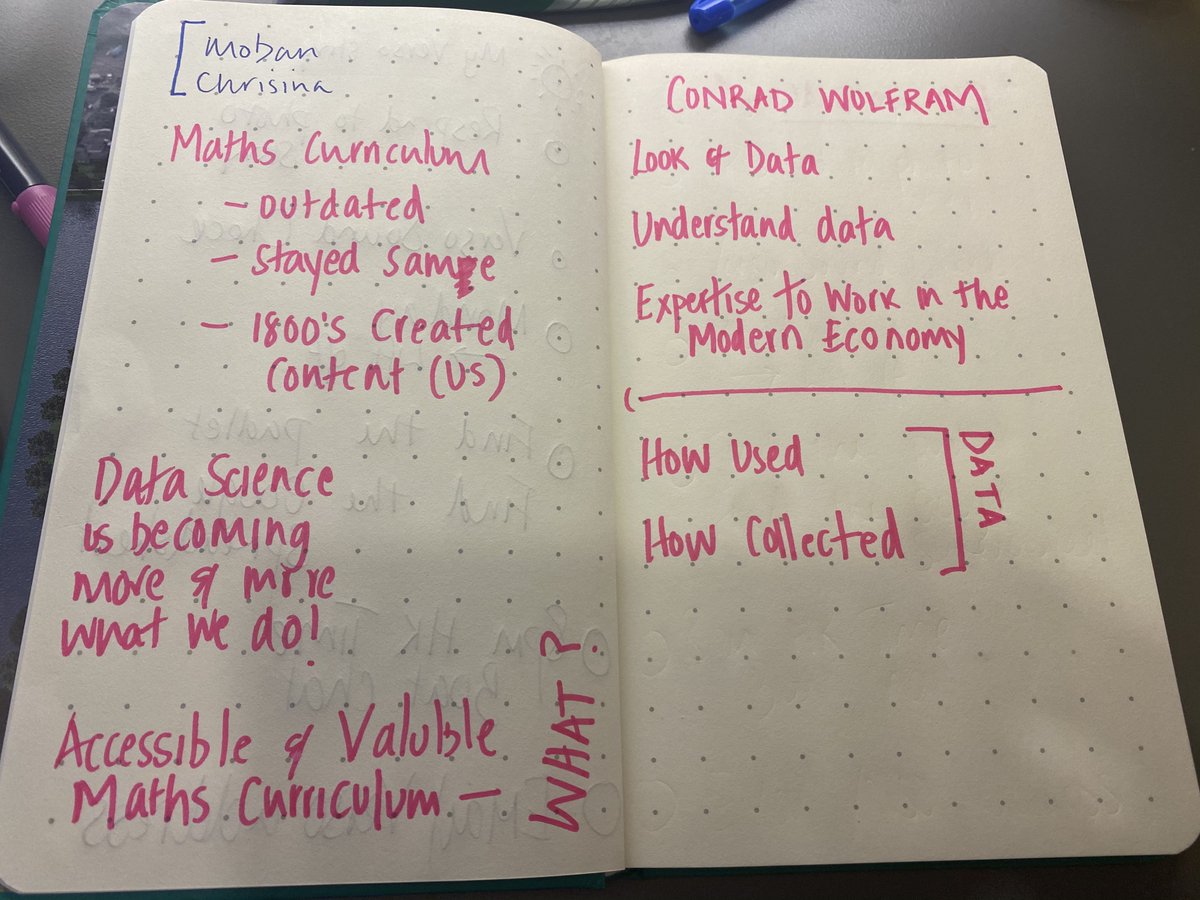 Moban
Chrisina
Maths Curriculum
- outdated
- stayed same
- 1800's Created
Content (US)
Data Science
is becoming
more & more
what we do!
Accessible & Valuble
Maths Curriculum -
WHAT?
CONRAD WOLFRAM
Look & Data
Understand data
Expertise to Work in the
Modern Economy
How Used
How Collected
DATA